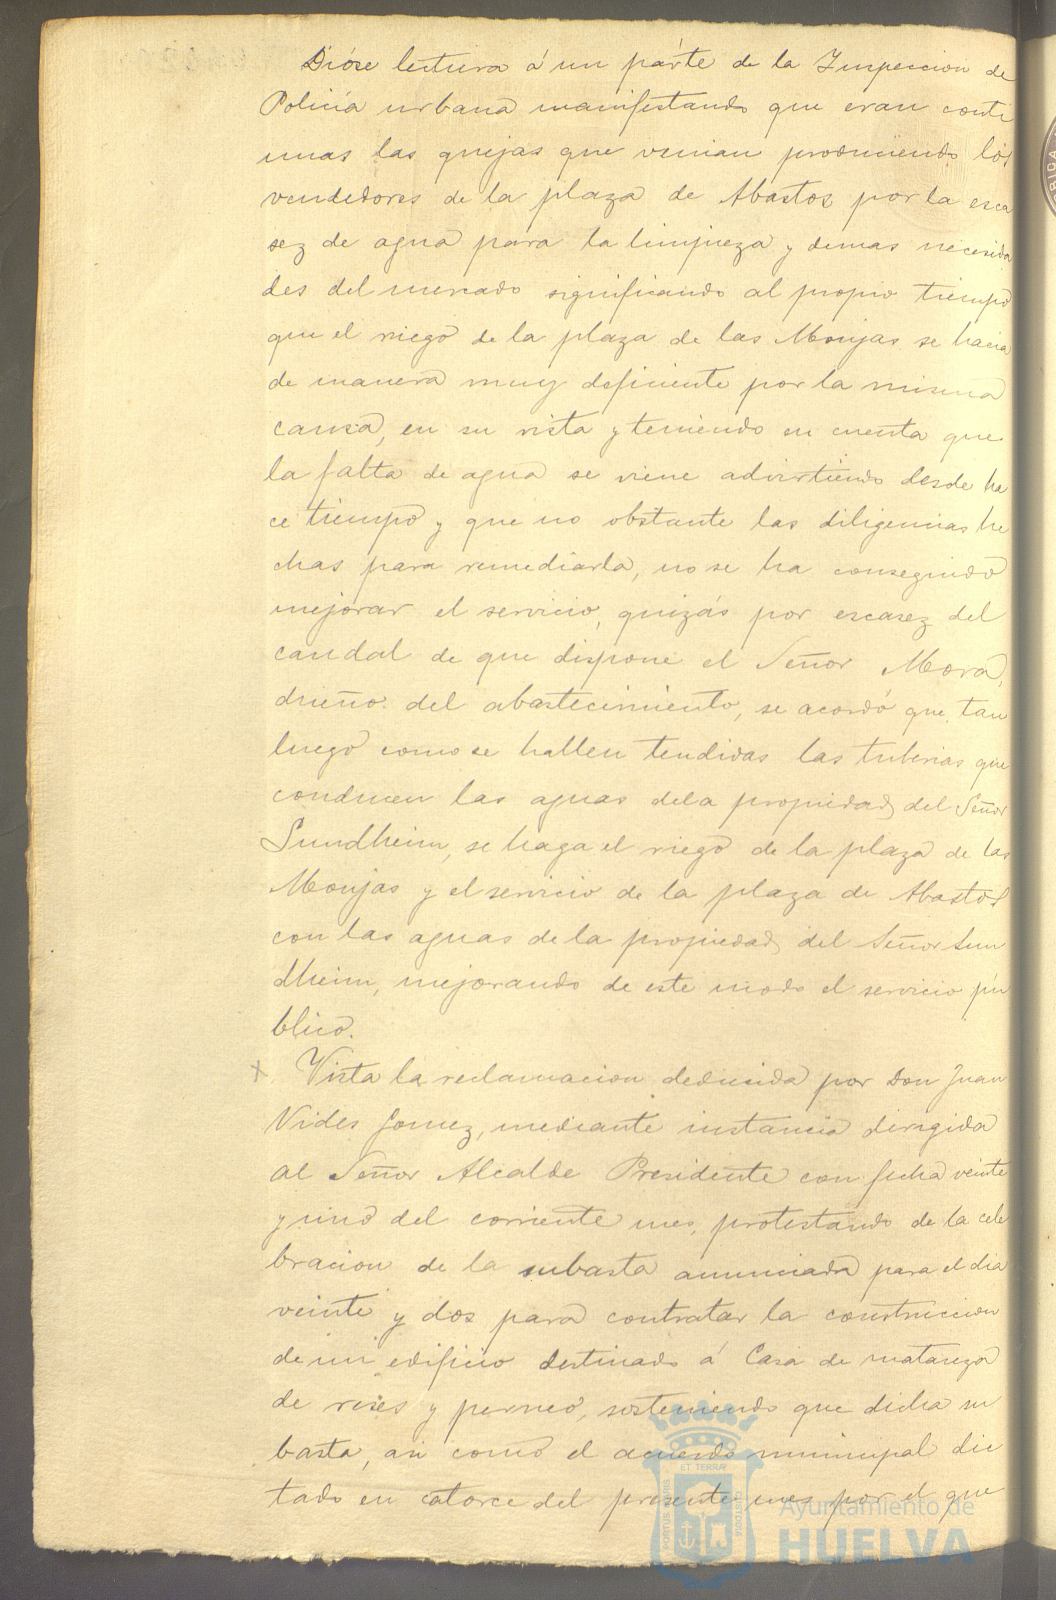 Dióse lectura á un párte de la Inspeccion de
Policía urbana manifestando que eran conti
nuas las quejas que venian produciendo los
vendedores de la plaza de Abastos por la esca
sez de agua para la limpieza y demas necesida
des del mercado significando al propio tiempo
que el riego de la plaza de las Monjas se hacia
de manera muy deficiente por la misma
causa, en su vista y teniendo en cuenta que
la falta de agua se viene advirtiendo desde ha
ce tiempo y que no obstante las diligencias he
chas para remediarla, no se ha conseguido
mejorar el servicio, quizás por escasez del
caudal de que dispone el Señor Mora,
dueño del abastecimiento, se acordó que tan
luego como se hallen tendidas las tuberias que
conducen las aguas de la propiedad del Señor
Sundheim, se haga el riego de la plaza de las
Monjas y el servicio de la plaza de Abastos
con las aguas de la propiedad del Señor Sun
dheim, mejorando de este modo el servicio pú
blico.
x Vista la reclamacion deducida por Don Juan
Vides Gomez, mediante instancia dirigida
al Señor Alcalde Presidente con fecha veinte
y uno del corriente mes, protestando de la cele
bracion de la subasta anunciada para el dia
veinte y dos para contratar la construccion
de un edificio destinado á Casa de matanza
de reses y perneo, sosteniendo que dicha su
basta, asi como el acuerdo municipal dic
tado en catorce del presente mes por el que
Ayuntamiento de
HUELVA
PORTUS MARIS
ET TERRÆ
CUSTODIA